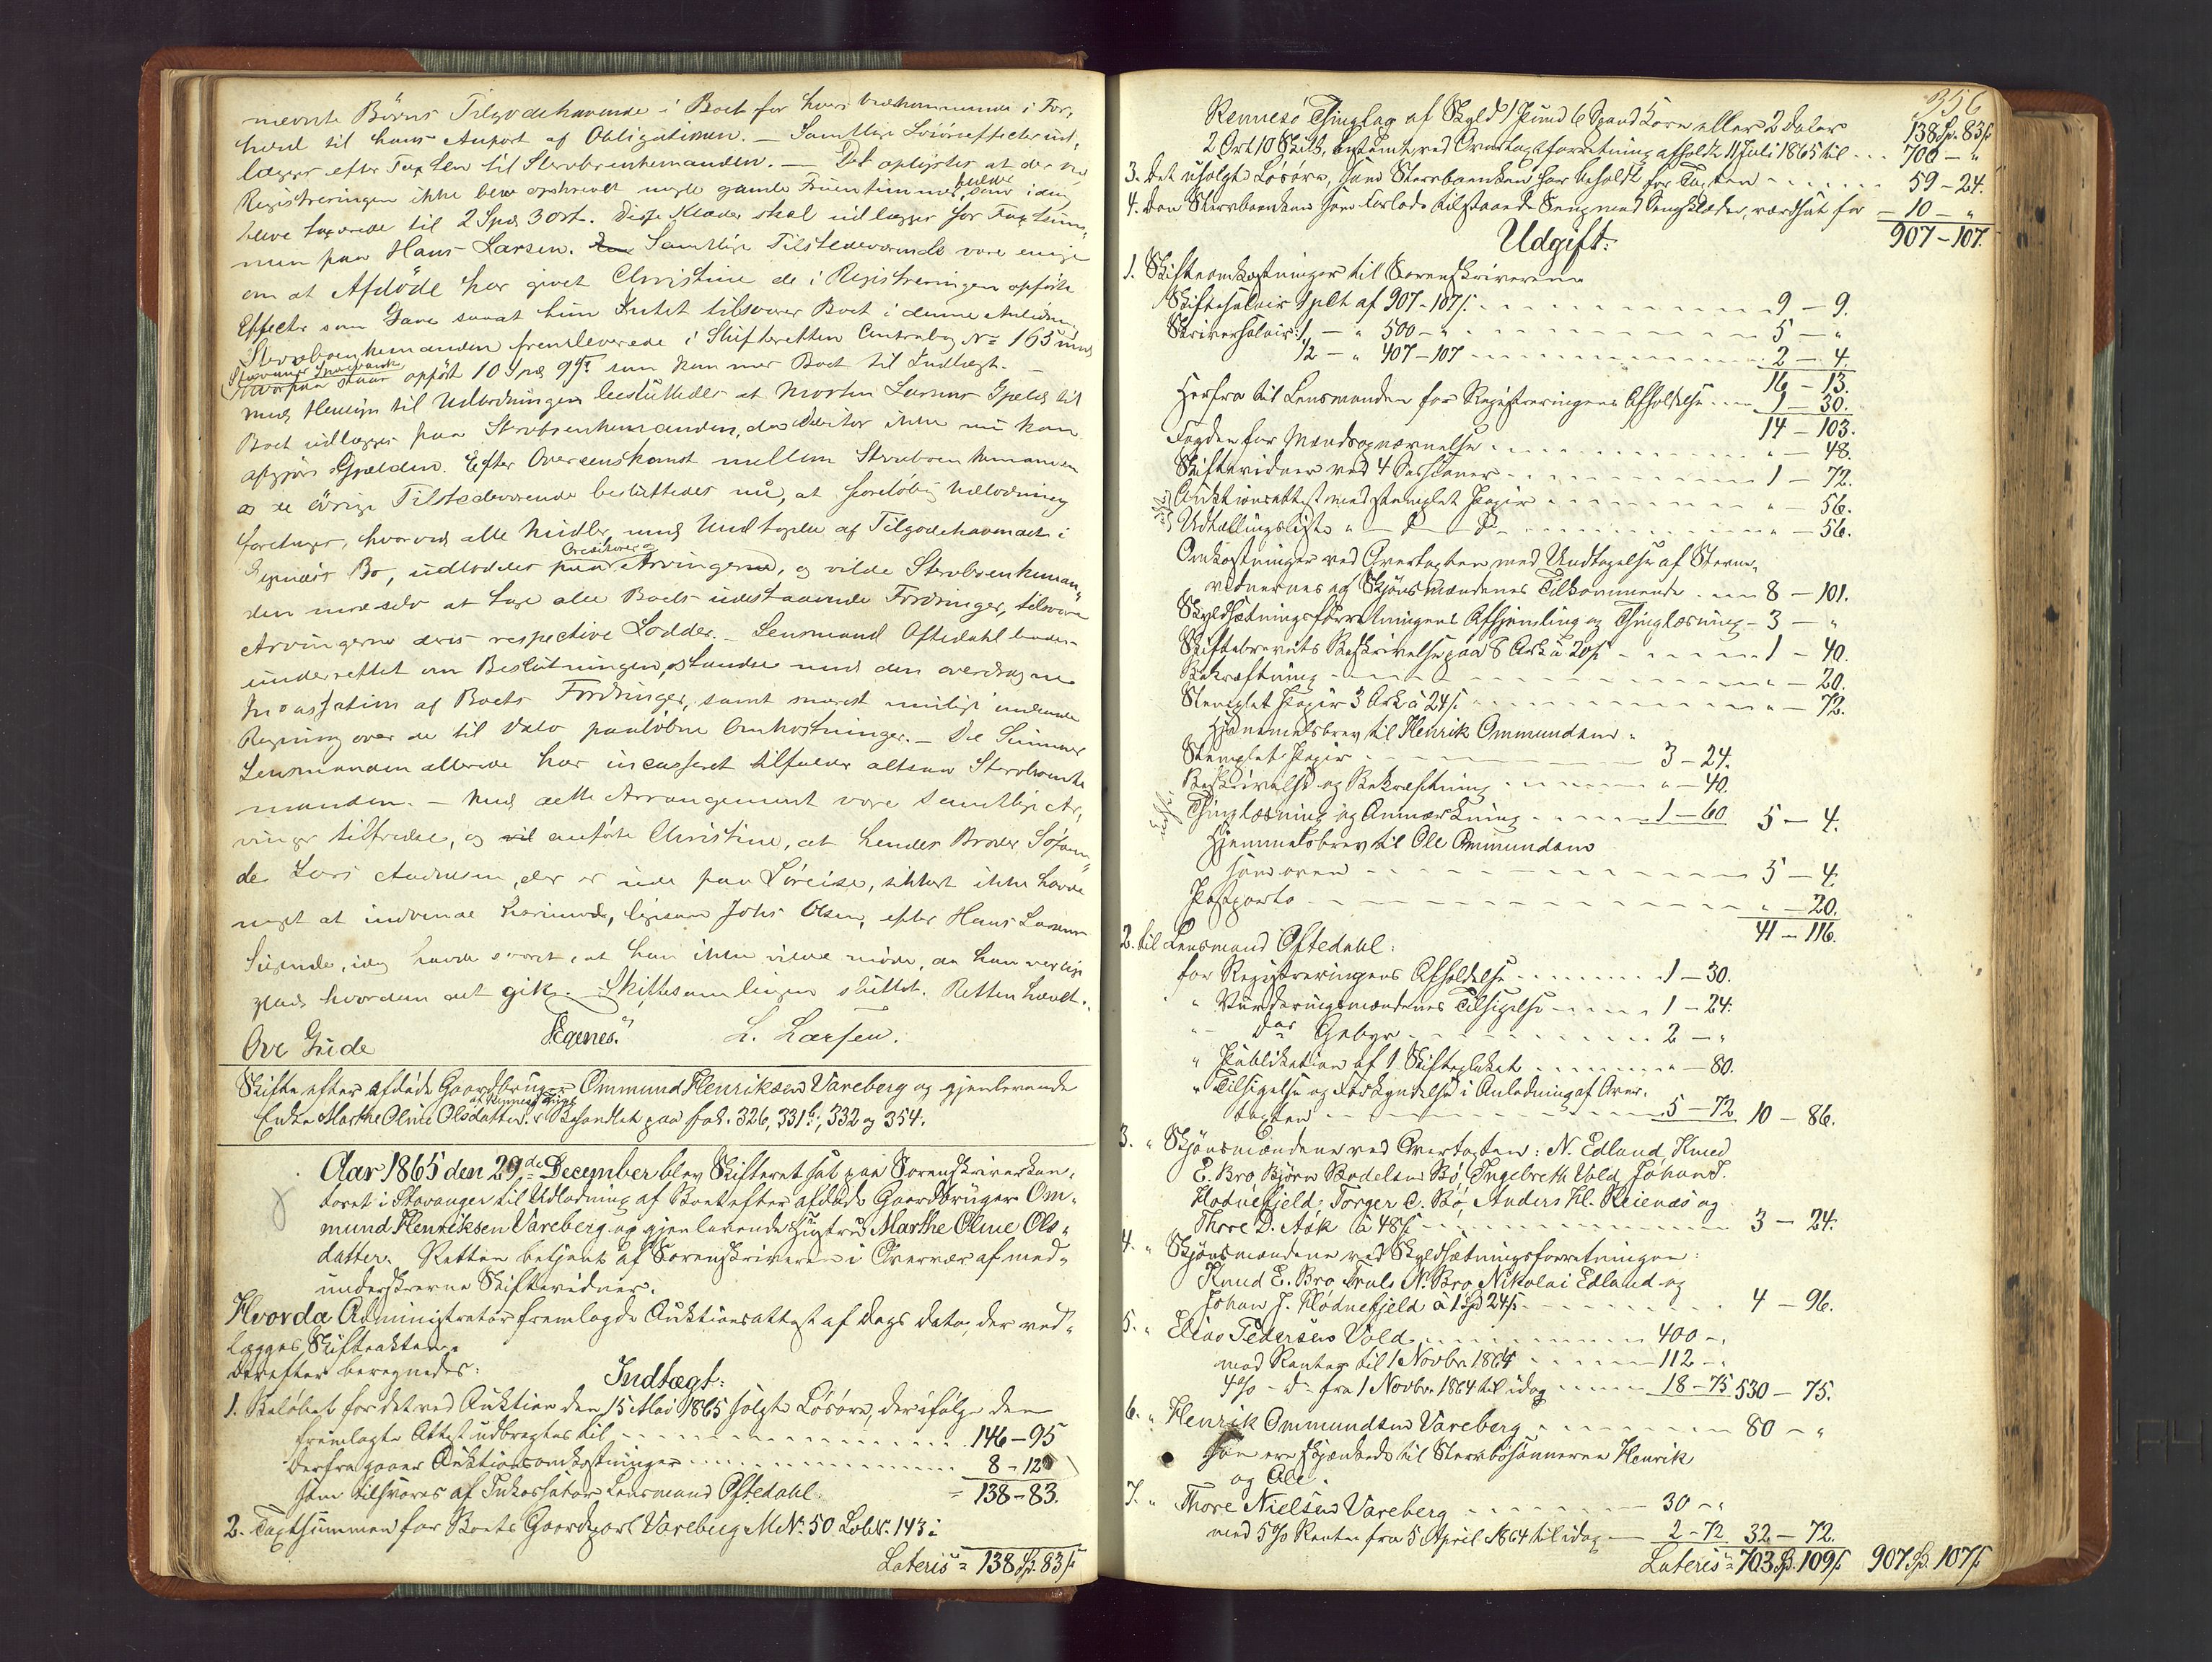 nævnte Börns Tilgodehavende i Boet for hvers vedkommende i For,
hold til hans Anpart af Obligationen. — Samtlige Løsöreeffecter ud,
lægges efter Taxten til Stervboenkemanden. — Det oplystes at der ved
Registreringen ikke blev opskrevet nogle gamle Fruentimmer klæder, som idag
bleve taxerede til 2 Spd 3 ort. Disse Klæder skal udlægges for Taxtsum,
men paa Hans Larsen. Samtlige Tilstedeværende vare enige
om at Afdöde har givet Christine de i Registreringen opförte
Effecter som Gave saaat hun Intet tilsvarer Boet i denne Anledn.
Stervboenkemanden fremleverede i Skifteretten Contrabog No 165 med
Stavanger Sparebank
hvorpaa staar opfört 10 Spd 9 s som kommer Boet til Indtægt. —
med Hensyn til Udlodningen besluttedes at Morten Larsens Gjæld til
Boet udlægges paa Stervboenkemanden, da Debitor ikke nu kan
afgjöre Gjælden. Efter Overenskomst mellem Stervboenkemanden
og de övrige Tilstedeværende besluttedes nu, at foreløbig Udlodning
foretages, hvorved alle Midler med Undtagelse af Tilgodehavendet i
Bo, udloddes paa Creditorer og Arvingerne, og vilde Stervboenkeman,
den mod selv at tage alle Boets udestaaende Fordringer, tilsvare
Arvingerne deres respective Lodder. — Lensmand Oftedahl bedes
underrettet om Beslutningen, standse med den overdragne
Incassation af Boets Fordringer, samt snarest muligt indsende
Regning over de til Dato paaløbne Omkostninger. — De Summer
Lensmanden allerede har incasseret tilfalder altsaa Stervboenke
manden. — Med dette Arrangement vare samtlige Ar,
vinger tilfredse, og anförte Christine, at hendes Broder Söfaren,
de Lars Andersen, der er ude paa Söreise, sikkert ikke havde
noget at indvende herimod, ligesom Johs Olsen, efter Hans Larsens
Sigende, idag havde svaret, at han ikke vilde møde, da han var lige
glad hvordan det gik. Skiftesamlingen sluttet. Retten hævet.
Ove Gude Egenes. L. Larsen.
Skifte efter afdöde Gaardbruger Ommund Henriksen Vareberg og gjenlevende
af Rennesø Thinglag
Enke Marthe Oline Olsdatter. Behandlet paa fol. 326, 331 b, 332 og 354.
Aar 1865 den 29de December blev Skifteret sat paa Sorenskriverkon,
toret i Stavanger til Udlodning af Boet efter afdöde Gaardbruger Om,
mund Henriksen Vareberg og gjenlevende Hustru Marthe Oline Ols,
datter. Retten betjent af Sorenskriveren i Overvær af med,
underskrevne Skiftevidner.
Hvorda Administrator fremlagde Auktionsattest af Dags Dato, der ved,
lægges Skifteakten.
Derefter beregnedes:
Indtægt:
1. Belöbet for det ved Auktion den 15 Mai 1865 solgte Lösöre, der ifölge den
fremlagte Attest udbragtes til 146 – 95
Derfra gaaer Auktionsomkostninger 8 – 12
som tilsvares af Inkassator Lensmand Oftedahl. = 138 – 83.
2. Taxtsummen for Boets Gaardpart Vareberg M.No. 50 Lob.No. 143 i
Lateris = 138 Sp. 83 s
356
Rennesö Thinglag af Skyld 1 Pund 6 Spand Korn eller 2 Daler 138 Sp. 83 s
2 Ort 10 Skill, bestemt ved Overtaxtforretning afholdt 11 Juli 1865 til 700 – "
3. Det usolgte Lösöre, som Stervboenken har beholdt for Taxten 59 – 24.
4. Den Stervboenken som Forlods tilstaaede Seng med Sengklæder, værdsat for 10 – "
907 – 107.
Udgift:
1. Skifteomkostninger til Sorenskriveren
Skiftesalair 1 pCt af 907 – 107 s 9 – 9.
Skriversalair: 1 – " 500 – " 5 – "
1/2 – " 407 – 107 2 – 4.
16 – 13.
Herfra til Lensmanden for Registreringens Afholdelse 1 – 30.
14 – 103.
Fogden for Mændsopnævnelse " – 48.
Skiftevidner ved 4 Sessioner 1 – 72.
Auktionsattest med stemplet Papir " – 56.
Udtællingsliste " – D – D " – 56.
Omkostninger ved Overtaxten med Undtagelse af Stevne,
vidnernes og Skjönsmændenes Tilkommende 8 – 101.
Skyldsætningsforretningens Afhjemling og Thinglæsning 3 – "
Skiftebrevets Beskrivelse paa 8 Ark à 20 s 1 – 40.
Bekræftning " – 20.
Stemplet Papir 3 Ark à 24 s " – 72.
Hjemmelsbrev til Henrik Ommundsen:
Stemplet Papir 3 – 24.
Beskrivelse og Bekræftning " – 40.
Thinglæsning og Anmærkning 1 – 60 5 – 4.
Hjemmelsbrev til Ole Ommundsen
som oven 5 – 4.
Postporto " – 20.
41 – 116.
2. til Lensmand Oftedahl:
for Registreringens Afholdelse 1 – 30.
" Vurderingsmændenes Tilsigelse 1 – 24.
" Des Gebyr 2 – "
" Publikation af 1 Skifteplakat " – 80.
" Tilsigelse og Forkyndelse i Anledning af Over,
taxten 5 – 72 10 – 86.
3. " Skjönsmændene ved Overtaxten: N. Edland, Knud
E. Bro, Björn Bodelsen Bö, Ingebreth Vold, Johan J.
Hodnefjeld, Torger C. Bö, Anders Hl. Reienæs og
Thore D. Ask à 48 s 3 – 24.
4. " Skjönsmændene ved Skyldsætningsforretningen:
Knud E. Bro, Truls N. Bro, Nikolai Edland og
Johan J. Hodnefjeld à 1 Sp 24 s 4 – 96.
5. " Elias Pedersen Vold 400 – "
med Renter til 1 Novbr. 1864 112 – "
4 % – d – fra 1 Novbr. 1864 til idag 18 – 75 530 – 75.
6. " Henrik Ommundsen Vareberg 80 – "
som ere skjænkede til Stervbosönnerne Henrik
og Ole.
7. " Thore Nielsen Vareberg 30 – "
med 5 % Renter fra 5 April 1864 til idag 2 – 72 32 – 72.
Lateris = 703 Sp. 109 s 907 Sp. 107 s